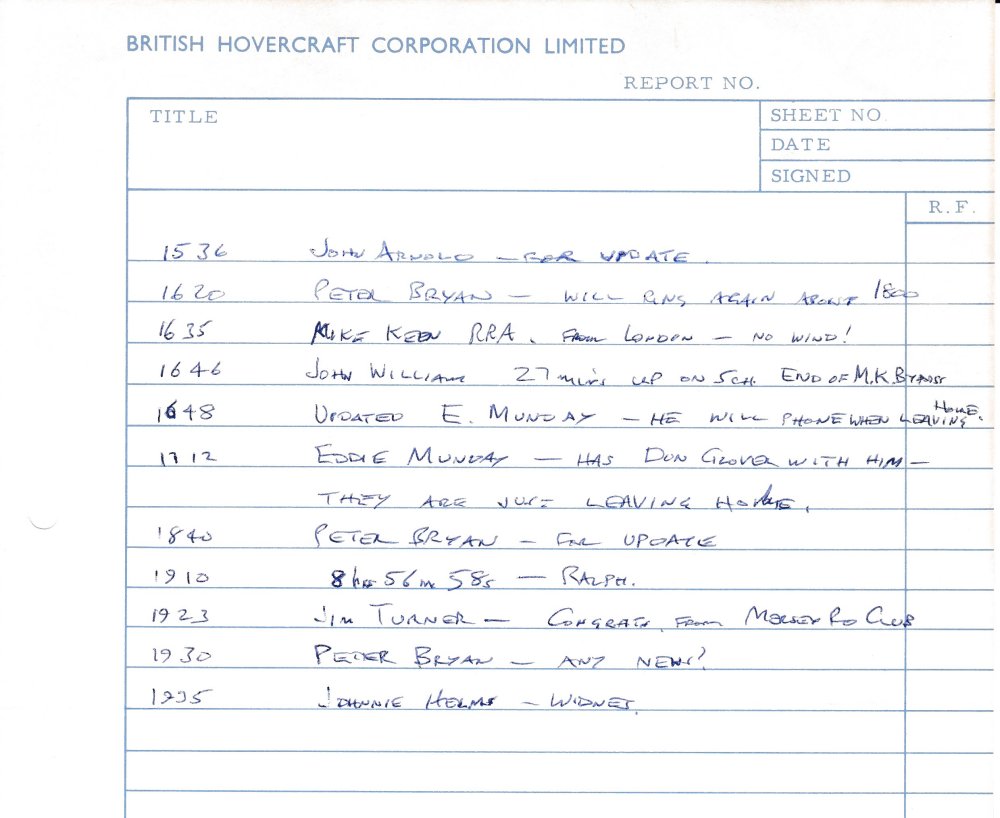 BRITISH HOVERCRAFT CORPORATION LIMITED
REPORT NO.
TITLE
SHEET NO.
DATE
SIGNED
R. F.
1536 JOHN ARNOLD — FOR UPDATE.
1620 PETER BRYAN — WILL RING AGAIN ABOUT 1800
1635 MIKE KEEN RRA. FROM LONDON — NO WIND!
1646 JOHN WILLIAMS 27 mins UP ON Sch. END OF M.K.
1648 UPDATED E. MUNDAY — HE WILL PHONE WHEN LEAVING HOME.
1712 EDDIE MUNDAY — HAS DON GLOVER WITH HIM —
THEY ARE JUST LEAVING HOME.
1840 PETER BRYAN — FOR UPDATE
1910 8 hrs 56 m 58s — RALPH.
1923 JIM TURNER — CONGRATS. FROM MERSEY RD CLUB
1930 PETER BRYAN — ANY NEWS?
1935 JOHNNIE HELMS — WIDNES.